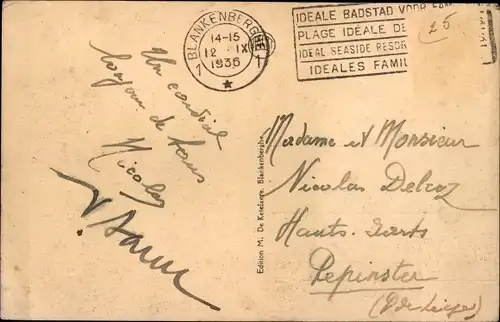 BLANKENBERGHE
14-15
12 IX
1936
1 1
IDEALE BADSTAD VOOR
PLAGE IDÉALE DE
IDEAL SEASIDE RESOR
IDEALES FAMIL
25
Un cordial
bonjour de tous
Nicolas
Edition M. De Ketelaere, Blankenberghe
Madame et Monsieur
Nicolas Delcoz
Hauts-Sarts
Pepinster
(Pce Liège)